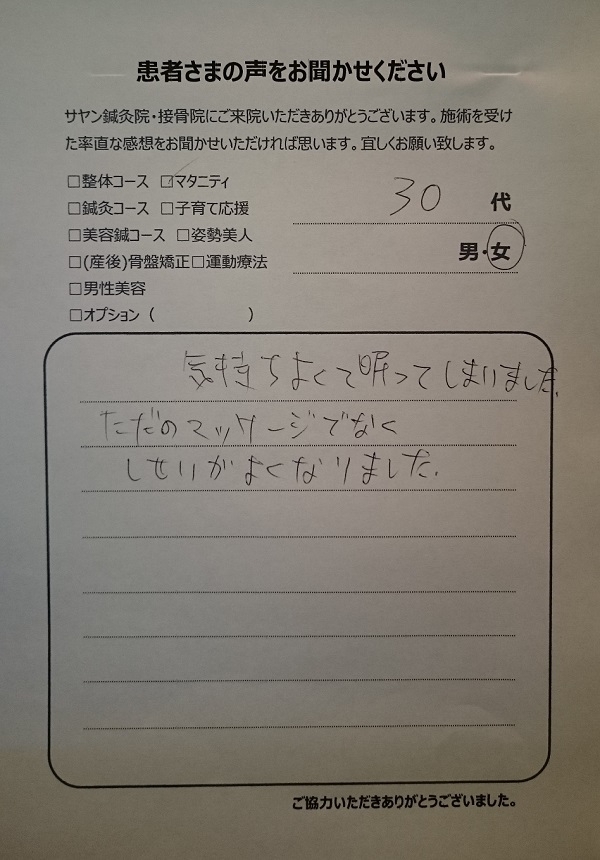 患者さまの声をお聞かせください
サヤン鍼灸院・接骨院にご来院いただきありがとうございます。施術を受け
た率直な感想をお聞かせいただければ思います。宜しくお願い致します。
□整体コース ☑マタニティ
□鍼灸コース □子育て応援
□美容鍼コース □姿勢美人
□(産後)骨盤矯正□運動療法
□男性美容
□オプション（　　　　　　）
30 代
男・女
気持ちよくて眠ってしまいました。
ただのマッサージでなく
しせいがよくなりました。
ご協力いただきありがとうございました。